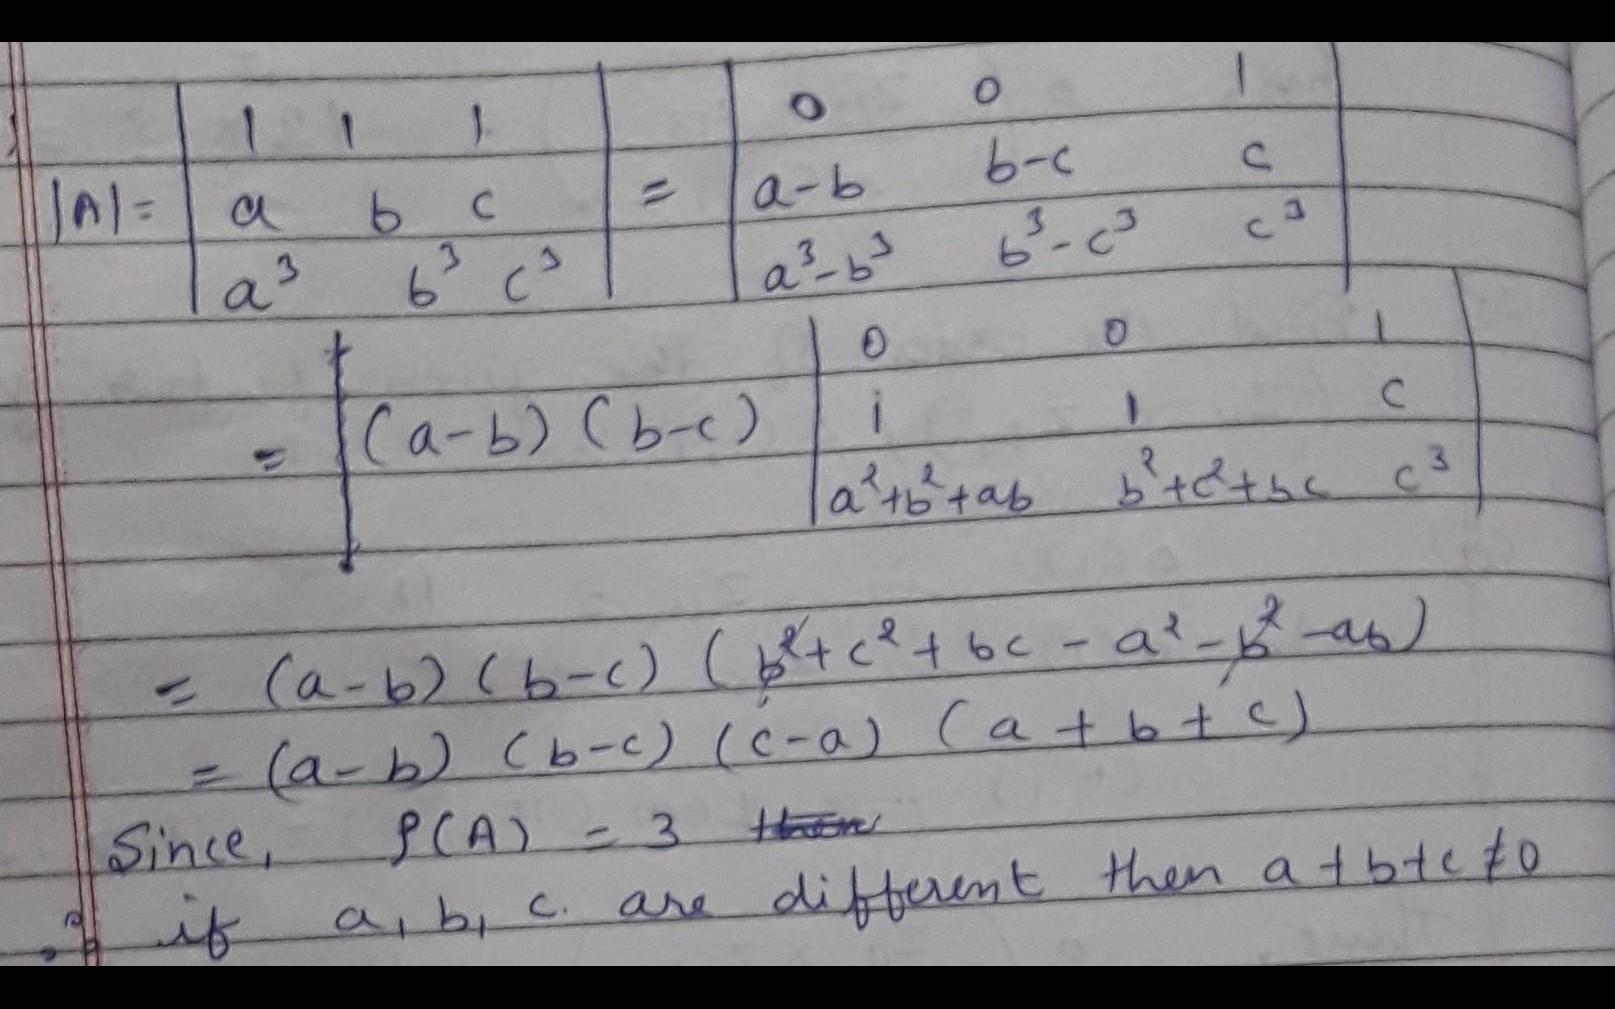 |A| = | 1 1 1 | = | 0 0 1 |
| a b c | | a-b b-c c |
| a³ b³ c³ | | a³-b³ b³-c³ c³ |
= (a-b) (b-c) | 0 0 1 |
| 1 1 c |
| a²+b²+ab b²+c²+bc c³ |
= (a-b) (b-c) ( b²+c²+bc-a²-b²-ab)
= (a-b) (b-c) (c-a) (a+b+c)
Since, ρ(A) = 3 then
if a, b, c. are different then a+b+c≠0